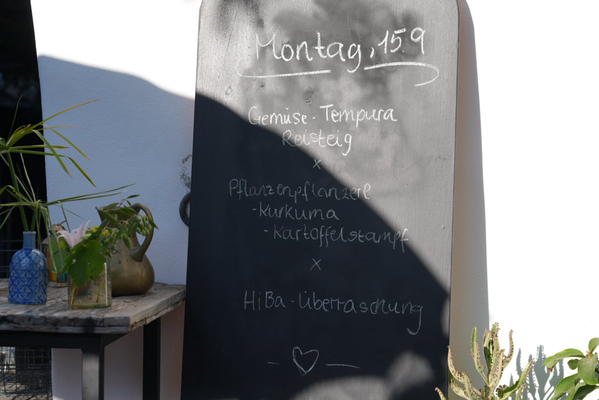 Montag, 15.9
Gemüse-Tempura
Reisteig
x
Pflanzenpflanzerl
-Kurkuma
-Kartoffelstampf
x
HiBa-Überraschung